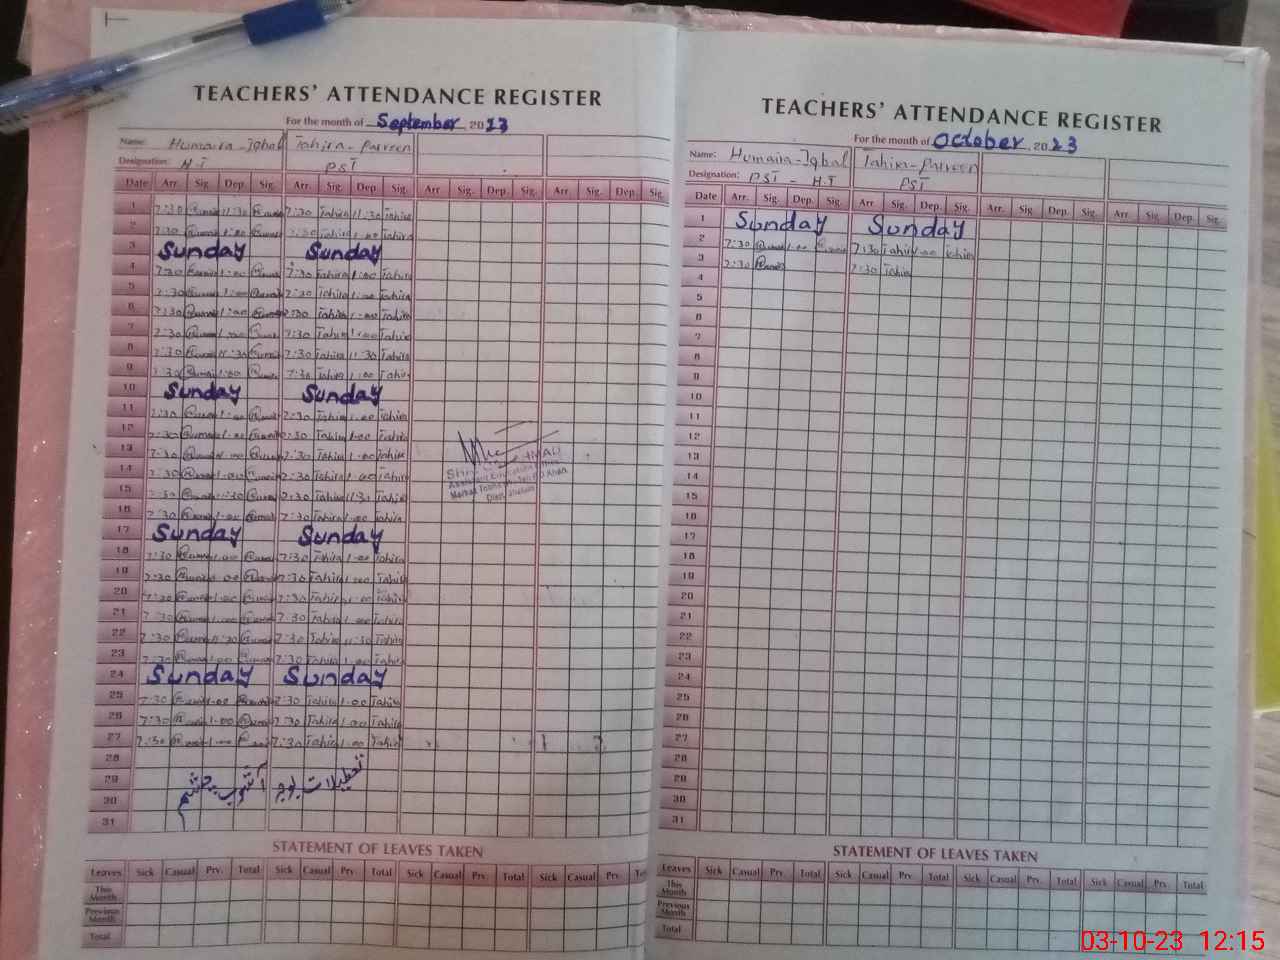 TEACHERS' ATTENDANCE REGISTER
For the month of September 2023
Name: Humaira-Iqbal Tahira-Parveen
Designation: H.T PST
Date Arr. Sig. Dep. Sig. Arr. Sig. Dep. Sig. Arr. Sig. Dep. Sig. Arr. Sig. Dep. Sig.
1 7:30 11:30 7:30 Tahira 11:30 Tahira
2 7:30 1:00 7:30 Tahira 1:00 Tahira
3 Sunday Sunday
4 7:30 1:00 7:30 Tahira 1:00 Tahira
5 7:30 1:00 7:30 Tahira 1:00 Tahira
6 7:30 1:00 7:30 Tahira 1:00 Tahira
7 7:30 1:00 7:30 Tahira 1:00 Tahira
8 7:30 11:30 7:30 Tahira 11:30 Tahira
9 7:30 1:00 7:30 Tahira 1:00 Tahira
10 Sunday Sunday
11 7:30 1:00 7:30 Tahira 1:00 Tahira
12 7:30 1:00 7:30 Tahira 1:00 Tahira
13 7:30 1:00 7:30 Tahira 1:00 Tahira
14 7:30 1:00 7:30 Tahira 1:00 Tahira
15 7:30 11:30 7:30 Tahira 11:30 Tahira
16 7:30 1:00 7:30 Tahira 1:00 Tahira
17 Sunday Sunday
18 7:30 1:00 7:30 Tahira 1:00 Tahira
19 7:30 1:00 7:30 Tahira 1:00 Tahira
20 7:30 1:00 7:30 Tahira 1:00 Tahira
21 7:30 1:00 7:30 Tahira 1:00 Tahira
22 7:30 11:30 7:30 Tahira 11:30 Tahira
23 7:30 1:00 7:30 Tahira 1:00 Tahira
24 Sunday Sunday
25 7:30 1:00 7:30 Tahira 1:00 Tahira
26 7:30 1:00 7:30 Tahira 1:00 Tahira
27 7:30 1:00 7:30 Tahira 1:00 Tahira
28
29 تعطیلات بوجہ آشوب چشم
30
31
STATEMENT OF LEAVES TAKEN
Leaves Sick Casual Prv. Total Sick Casual Prv. Total Sick Casual Prv. Total Sick Casual Prv.
This Month
Previous Month
Total
TEACHERS' ATTENDANCE REGISTER
For the month of October 2023
Name: Humaira-Iqbal Tahira-Parveen
Designation: PST - H.T PST
Date Arr. Sig. Dep. Sig. Arr Sig. Dep. Sig. Arr. Sig Dep. Sig. Arr. Sig. Dep. Sig.
1 Sunday Sunday
2 7:30 1:00 7:30 Tahira 1:00 Tahira
3 7:30 7:30 Tahira
4
5
6
7
8
9
10
11
12
13
14
15
16
17
18
19
20
21
22
23
24
25
26
27
28
29
30
31
STATEMENT OF LEAVES TAKEN
Leaves Sick Casual Prv. Total Sick Casual Prv. Total Sick Casual Prv. Total Sick Casual Prv. Total
This Month
Previous Month
Total
03-10-23 12:15